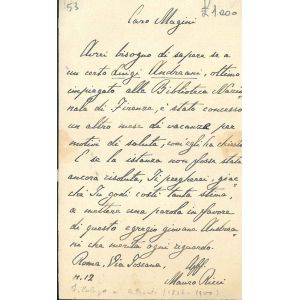 53
£ 1.000
Caro Magini
Avrei bisogno di sapere se a
un certo Luigi Andreani, ottimo
impiegato alla Biblioteca Nazio
nale di Firenze, è stato concesso
un altro mese di vacanze per
motivi di salute, com'egli ha chiesto
E se la istanza non fosse stata
ancora risoluta, Ti pregherei, giac
chè Tu godi costì tanta stima,
a mettere una parola in favore
di questo egregio giovane Andrea
ni che merita ogni riguardo.
Roma, Via Toscana,
n. 12
Aff.
Mauro Ricci